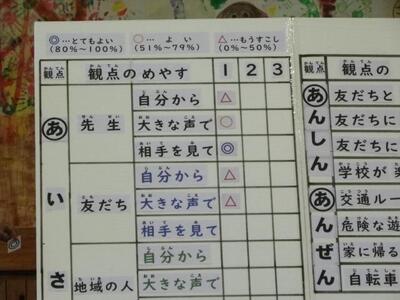 ◎…とてもよい ○…よい △…もうすこし
(80%〜100%) (51%〜79%) (0%〜50%)
観点 観点のめやす 1 2 3
あいさ
先生
自分から △
大きな声で ○
相手を見て ◎
友だち
自分から △
大きな声で △
相手を見て
地域の人
自分から
大きな声で
観点 観点の
あんしん
友だちと
友だちに
友だちに
学校が
あんぜん
交通ルー
危険な遊
家に帰る
自転車